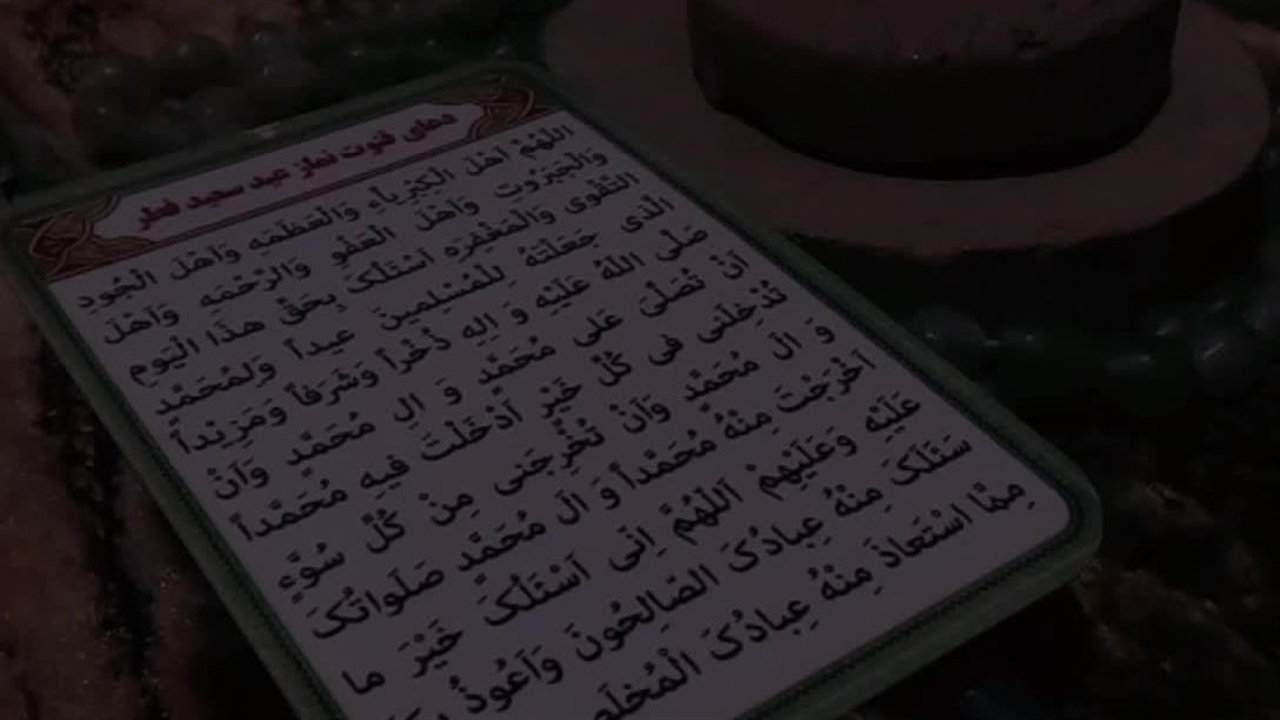 دعای قنوت نماز عید سعید فطر
اَللّهُمَّ اَهْلَ الْكِبْرِیاءِ وَالْعَظَمَهِ وَاَهْلَ الْجُودِ
وَالْجَبَرُوتِ وَاَهْلَ الْعَفْوِ وَالرَّحْمَهِ وَاَهْلَ
التَّقْوى وَالْمَغْفِرَهِ اَسْئَلُکَ بِحَقِّ هذَا الْیَومِ
الَّذى جَعَلْتَهُ لِلْمُسْلِمینَ عیداً وَلِمُحَمَّدٍ
صَلَّى اللهُ عَلَیْهِ وَ الِهِ ذُخْراً وَشَرَفاً وَمَزِیْداً
اَنْ تُصَلِّىَ عَلى مُحَمَّدٍ وَ الِ مُحَمَّدٍ وَاَنْ
تُدْخِلَنى فى كُلِّ خَیْرٍ اَدْخَلْتَ فیهِ مُحَمَّداً
وَ الَ مُحَمَّدٍ وَاَنْ تُخْرِجَنى مِنْ كُلِّ سُوَّءٍ
اَخْرَجْتَ مِنْهُ مُحَمَّداً وَ الَ مُحَمَّدٍ صَلَواتُکَ
عَلَیْهِ وَعَلَیْهِمْ اَللّهُمَّ اِنّى اَسْئَلُکَ خَیْرَ ما
سَئَلَکَ مِنْهُ عِبادُکَ الصّالِحُونَ وَاَعُوذُ
مِمَّا اسْتَعاذَ مِنْهُ عِبادُکَ